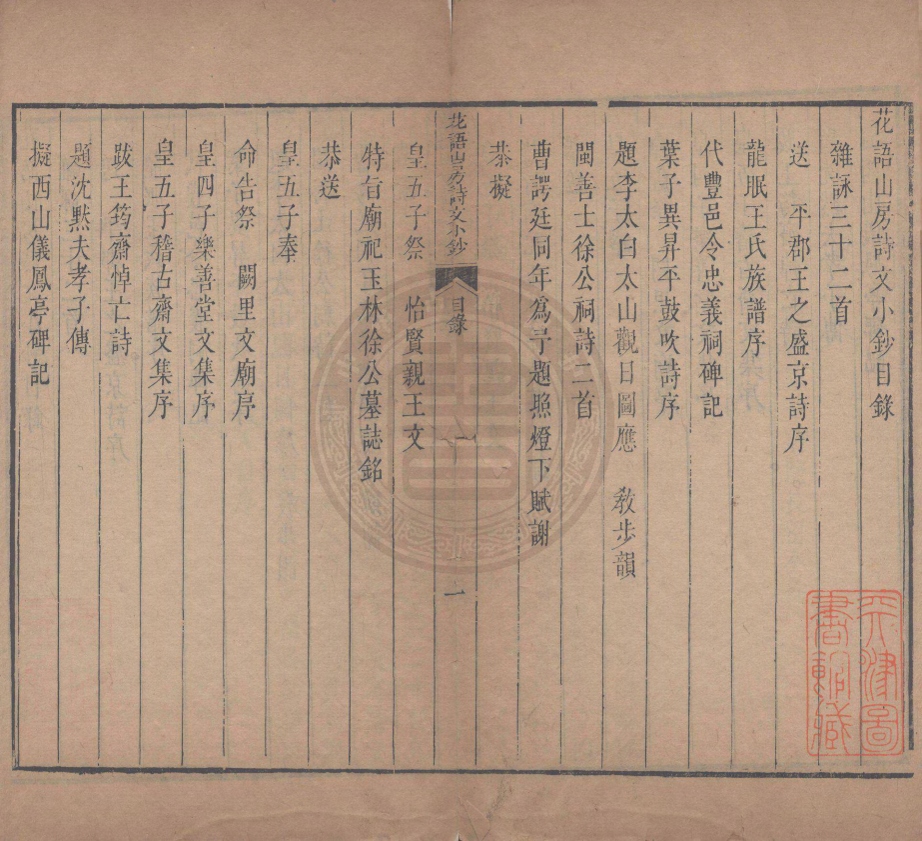 花語山房詩文小鈔目錄
雜詠三十二首
送　平郡王之盛京詩序
龍眠王氏族譜序
代豐邑令忠義祠碑記
葉子異昇平鼓吹詩序
題李太白太山觀日圖應　教步韻
閩善士徐公祠詩二首
曹諤廷同年爲予題照燈下賦謝
恭擬
花語山房詩文小鈔　目錄　一
皇五子祭　怡賢親王文
特旨廟祀玉林徐公墓誌銘
恭送
皇五子奉
命告祭　闕里文廟序
皇四子樂善堂文集序
皇五子稽古齋文集序
跋王筠齋悼亡詩
題沈默夫孝子傳
擬西山儀鳳亭碑記
天津圖
書館藏